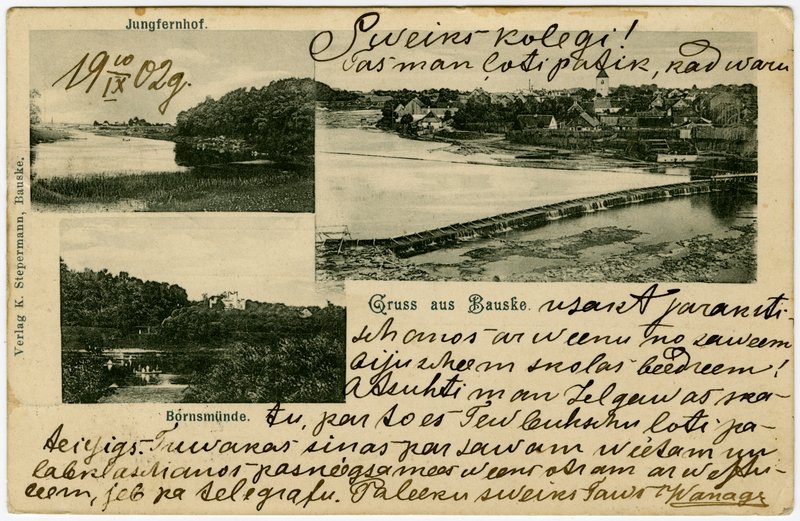 Jungfernhof.
19 10/IX 02g.
Sweiks kolegi!
Tas man ļoti patik, kad waru
Verlag K. Stepermann, Bauske.
Gruss aus Bauske.
usakt saraksti-
schanos ar weenu no saweem
bijuscheem skolas beedreem!
Atsuhti man Jelgawas ska-
tu, par to es Tew buhschu loti pa-
Bornsmünde.
teizigs. Tuwakas sinas par sawam weetam un
labklaschanos pasneegsamees weens otram ar westu-
leem, jeb pa telegrafu. Paleeku sweiks Taws Wanags